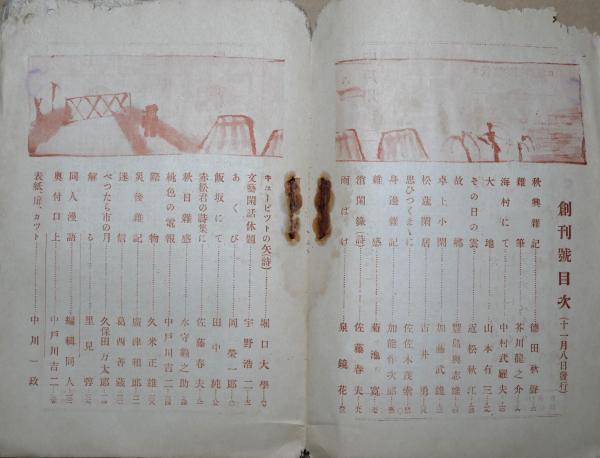 創刊號目次(十一月八日發行)
秋興雜記 德田秋聲
雜筆 芥川龍之介
海村にて 中村武羅夫
大地 山本有三
その日の雲 近松秋江
故郷 豐島與志雄
卓上小閑 加藤武雄
松蓮閑居 吉井勇
思ひつくまゝに 佐佐木茂索
身邊雜記 加能作次郎
雜感 菊池寬
消閑錄(詩) 佐藤春夫
雨ばけ 泉鏡花
キューピツトの矢(詩) 堀口大學
文藝閑話休題 宇野浩二
あくび 岡榮一郎
飯坂にて 田中純
赤松君の詩集に 佐藤春夫
秋日雜感 水守龜之助
桃色の電報 中戸川吉二
際物 久米正雄
災後雜記 廣津和郎
迷信 葛西善藏
べつたら市の月 久保田万太郎
解る 里見弴
同人漫語 編輯同人
奥付口上 中戸川吉二
表紙、扉、カツト 中川一政